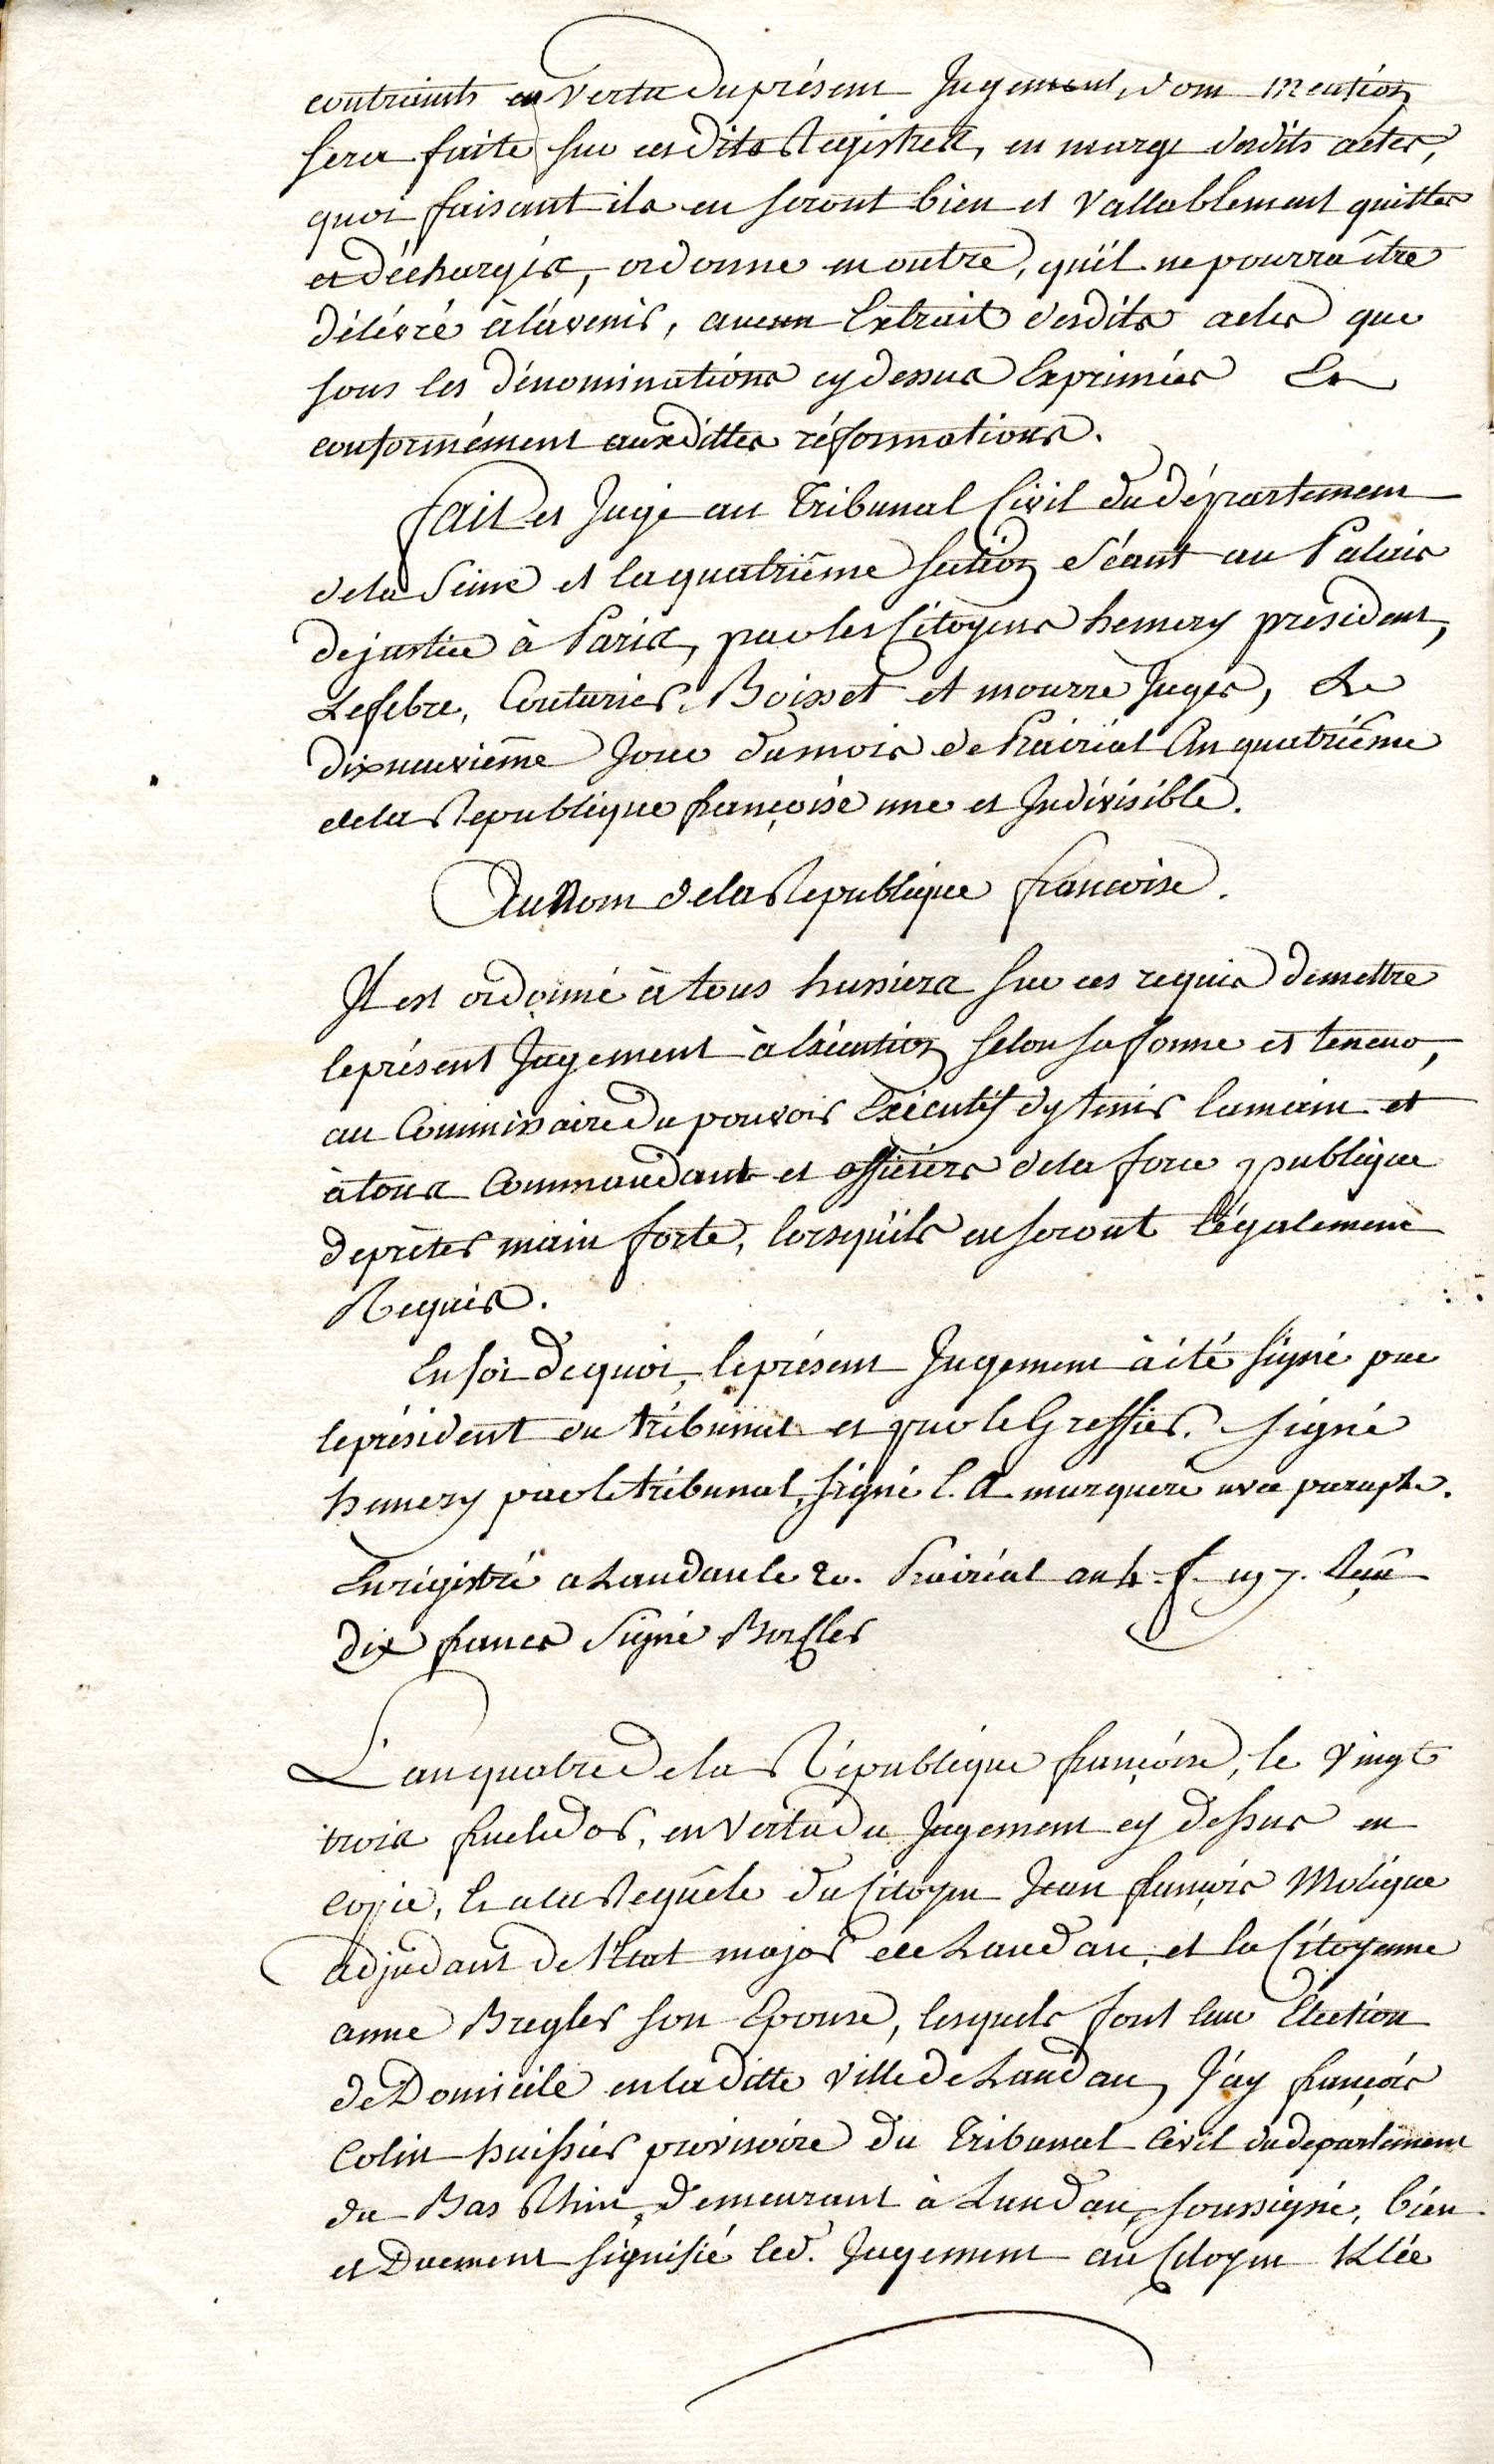 contraints en vertu du présent Jugement, dont mention
sera faite sur cesdits Registres, en marge desdits actes,
quoi faisant ils en seront bien et vallablement quittes
et déchargés, ordonne en outre, qu'il ne pourra être
délivré à l'avenir, aucun Extrait desdits actes que
sous les dénominations cy dessus Exprimées Et
conformément auxdittes réformations.
fait et Jugé au Tribunal Civil du département
de la Seine et la quatriême section séant au Palais
de justice à Paris, par les Citoyens hemery président,
Lefebre, Couturier, Boisset et mourre Juges, Le
dixneuviême Jour du mois de Prairial An quatriême
de la Republique françoise une et Indivisible.
Au Nom de la Republique francoise.
Il est ordonné à tous hussiers sur ces requis de mettre
le présent Jugement à Exécution selon sa forme et teneur,
au Commissaire du pouvoir Exécutif d'y tenir la main et
à tous Commandant et officiers de la force publique
de prêter main forte, lorsqu'ils en seront légalement
Requis.
En foi de quoi, le présent Jugement à été signé par
le président du tribunal et par le Greffier. signé
hemery par le tribunal, signé C. A marquere avec paraphe.
Enrégistré a Landau le 20. Prairial an 4. f. 197. Reçû
dix francs Signé
L'an quatre de la République françoise, le vingt
trois fructidor, en vertu du Jugement cy dessus en
copie, Et a la Requête du Citoyen Jean françois Molique
adjudant de l'Etat major de Landau, et la Citoyenne
anne Bregler son Epouse, lesquels font leur Election
de Domicile en laditte ville de Landau, J'ay françois
Colin huissier provisoire du Tribunal Civil du departement
du Bas Rhin, demeurant à Landau, soussigné, bien
et Duement signifié led. Jugement au Citoyen Klée